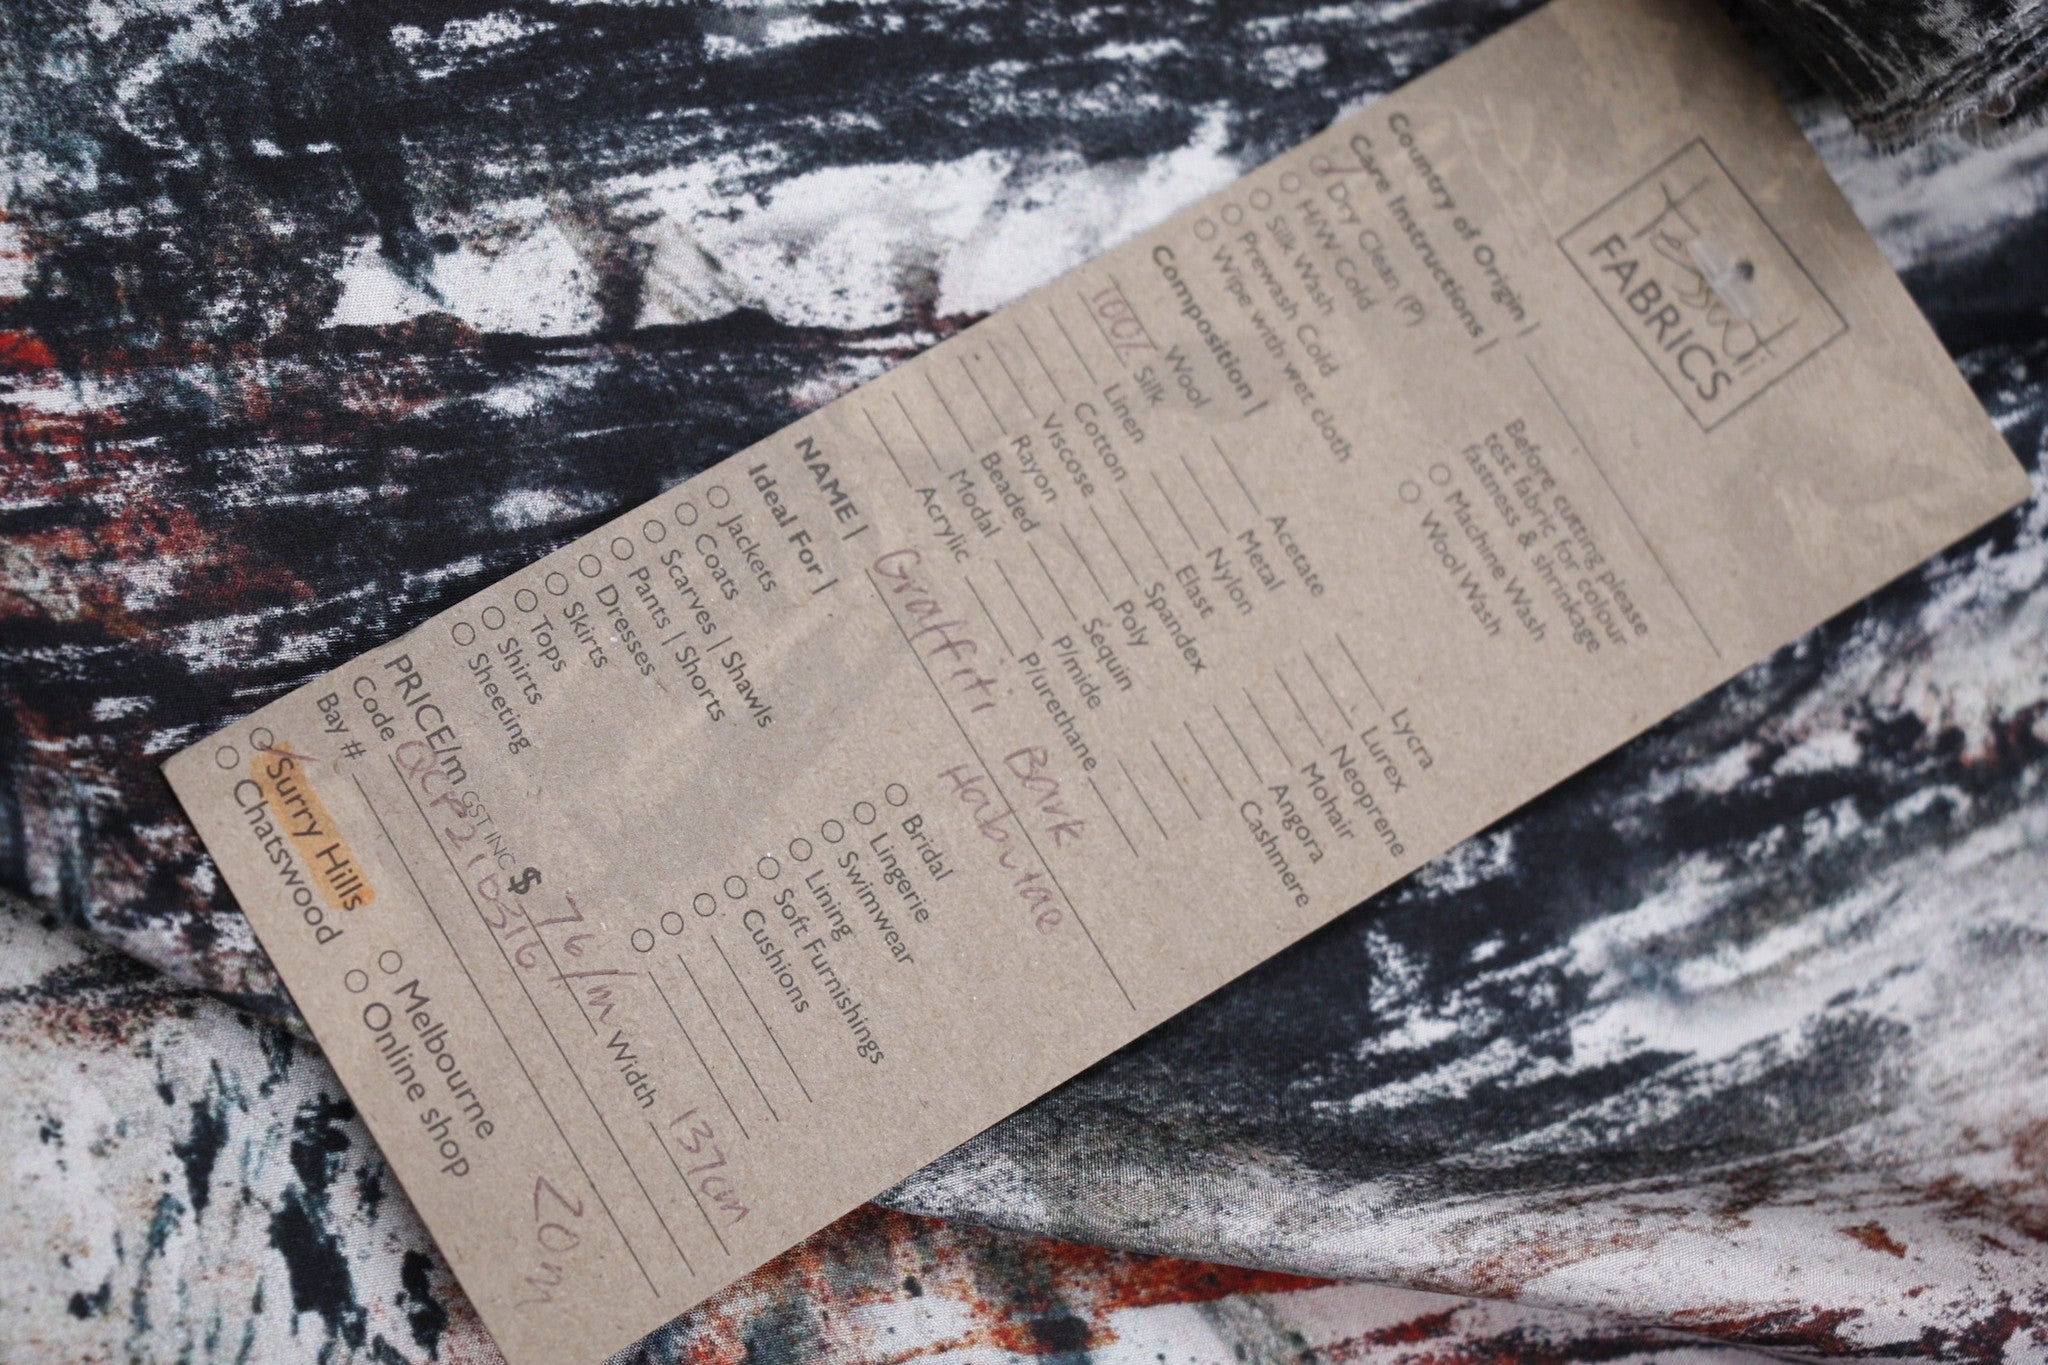 Tessuti
FABRICS
Country of Origin |
Care Instructions |
Dry Clean (P)
H/W Cold
Silk Wash
Prewash Cold
Wipe with wet cloth
Before cutting please
test fabric for colour
fastness & shrinkage
Machine Wash
Wool Wash
Composition |
Wool
100% Silk
Linen
Cotton
Viscose
Rayon
Beaded
Modal
Acrylic
Acetate
Metal
Nylon
Elast
Spandex
Poly
Sequin
P/mide
P/urethane
Lycra
Lurex
Neoprene
Mohair
Angora
Cashmere
NAME | Graffiti Bark
Habutae
Ideal For |
Jackets
Coats
Scarves | Shawls
Pants | Shorts
Dresses
Skirts
Tops
Shirts
Sheeting
Bridal
Lingerie
Swimwear
Lining
Soft Furnishings
Cushions
PRICE/m GST INC $ 76/m Width 137cm
Code QCP21D316
Bay #
Surry Hills
Chatswood
Melbourne
Online shop
20m